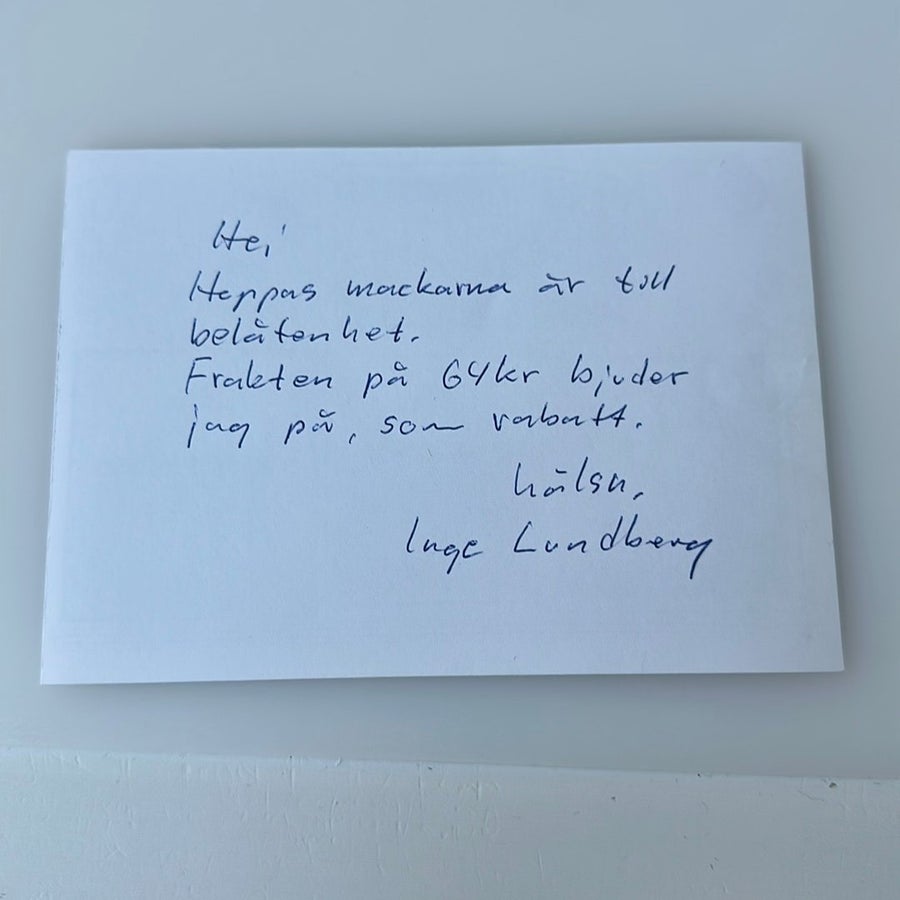 Hej
Hoppas mackarna är till
belåtenhet.
Frakten på 64kr bjuder
jag på, som rabatt.
hälsn,
Inge Lundberg